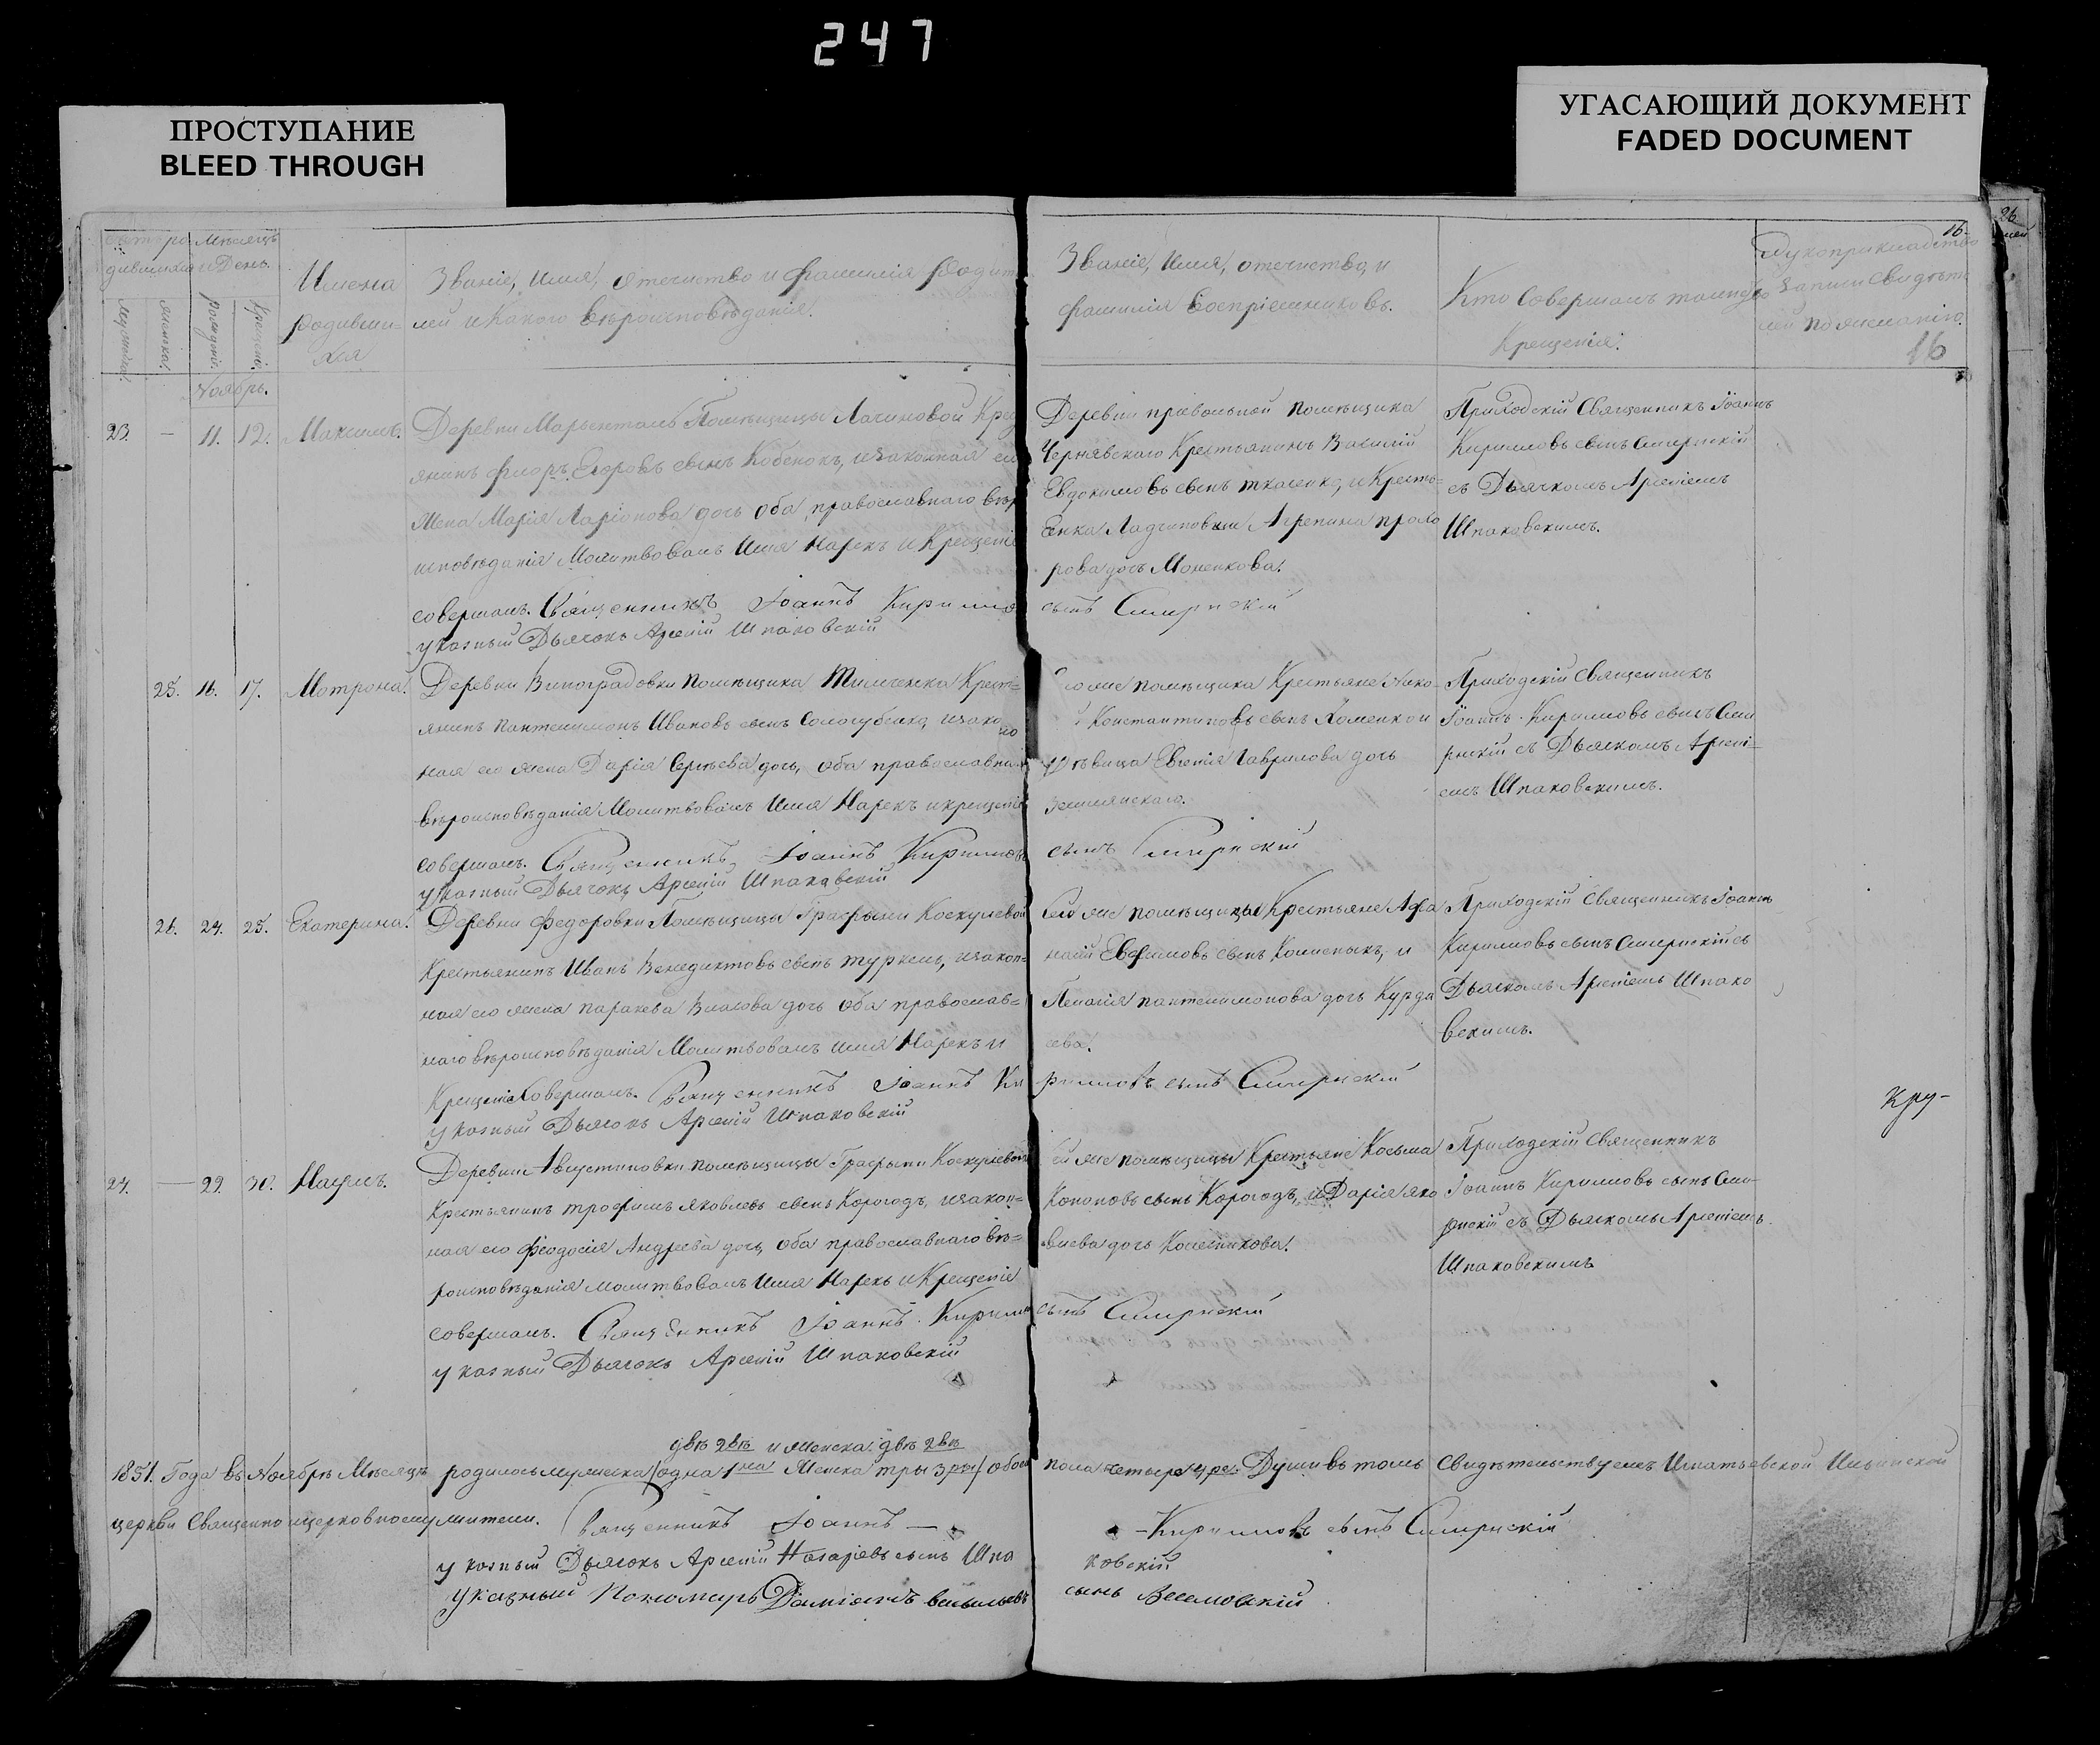 247
ПРОСТУПАНИЕ
BLEED THROUGH
УГАСАЮЩИЙ ДОКУМЕНТ
FADED DOCUMENT
26
16.
Мѣсяцъ
и День.
Имена
родивши-
хся
Званіе, имя, отечиство и фамилія родит
лей и какого вѣроисповѣданія.
Званіе, имя, отечиство, и
фамилія воспріемниковъ.
Кто совершалъ таинство
Крещенія.
Рукоприкладство
записи свидѣте
лей по желанію.
16
Ноябрь.
23. — 11. 12. Максимъ.
Деревни Марьенталь Помѣщицы Лачиновой Крес
янинъ Флоръ Егоровъ сынъ Кобенокъ, и законная ея
жена Марія Ларіонова дочь оба православнаго вѣр
исповѣданія Молитвовалъ Имя Нарекъ и Крещеніе
совершалъ. Священникъ Іоаннъ Кирилло
указный Дьячокъ Арсеній Шпаковскій
Деревни привольной помѣщика
Чернявскаго Крестьянинъ Василій
Евдокимовъ сынъ ткаченко, и Кресть-
Енка Ладчиновки Агрепина прохо
рова дочь Моненкова.
сынъ Смирнскій
Приходскій Священникъ Іоаннъ
Кирилловъ сынъ Смирнскій
съ Дьячкомъ Арсеніемъ
Шпаковскимъ.
25. 16. 17. Мотрона.
Деревни Виноградовки помѣщика Тимченка Крест-
янинъ Пантелимонъ Ивановъ сынъ Сологубенко, и зако
ная его жена Дарія Сергѣева дочь, оба православна
вѣроисповѣданія Молитвовалъ Имя Нарекъ и крещеніе
совершалъ. Священникъ Іоаннъ Кирилловъ
указный Дьячокъ Арсеній Шпаковскій
го же помѣщика Крестьяне
Константиновъ сынъ Хоменко и
дѣвица Евгенія Гаврилова дочь
Землянскаго.
сынъ Смирнскій
Приходскій Священникъ
Іоаннъ Кирилловъ сынъ Сми
рнскій съ Дьячкомъ Арсені-
емъ Шпаковскимъ.
26. 24. 25. Екатерина.
Деревни Федоровки Помѣщицы Графыни Коскулевой
Крестьянинъ Иванъ Венедиктовъ сынъ туркенъ, и закон-
ная его жена Параскева Власова дочь оба православ-
наго вѣроисповѣданія Молитвовалъ имя Нарекъ и
Крещеніе Совершалъ. Священникъ Іоаннъ Ки
указный Дьячокъ Арсеній Шпаковскій
Сей же помѣщицы Крестьяне Афа
насій Евфимовъ сынъ Колисныкъ, и
Пелагія пантелимонова дочь Курда
сева.
рилловъ сынъ Смирнскій
Приходскій Священникъ Іоаннъ
Кирилловъ сынъ Смирнскій съ
Дьячкомъ Арсеніемъ Шпако
вскимъ.
Кру-
24. — 29. 30. Наумъ.
Деревни Августиновки помѣщицы Графыни Коскулевой
Крестьянинъ трофимъ Яковлевъ сынъ Корогодъ, и закон-
ная его Феодосія Андреева дочь, оба православнаго вѣ-
роисповѣданія молитвовалъ Имя Нарекъ и Крещеніе
совершалъ. Священникъ Іоаннъ Кирилло
указный Дьячокъ Арсеній Шпаковскій
ей же помѣщицы Крестьяне Косьма
Кононовъ сынъ Корогодъ, и Дарія Яко
влева дочь Колесникова.
сынъ Смирнскій
Приходскій Священникъ
Іоаннъ Кирилловъ сынъ Сми-
рнскій съ Дьячкомъ Арсеніемъ
Шпаковскимъ
двѣ 2вѣ и женска: двѣ 2вѣ
1851. Года въ Ноябрѣ Мѣсяцѣ родилось мужеска (одна 1на женска три 3ри) обоего пола четыре 4ре. Души въ томъ Свидѣтельствуемъ Игнатьевской Ильинской
церкви Священно и церковнослужители. Священникъ Іоаннъ — — Кирилловъ сынъ Смирнскій
указный Дьячокъ Арсеній Назаріевъ сынъ Шпа ковскій
Указный Пономарь Даміанъ Васильевъ сынъ Веселовскій